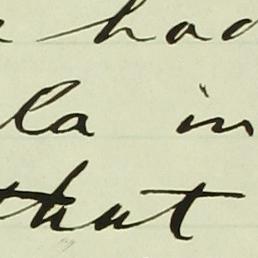 had
la in
that